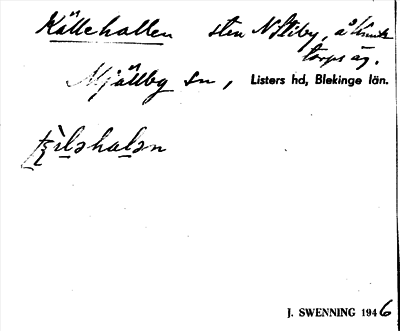 Källehallen sten N Sliby, å
torps äg.
Mjällby sn, Listers hd, Blekinge län.
J. SWENNING 1946